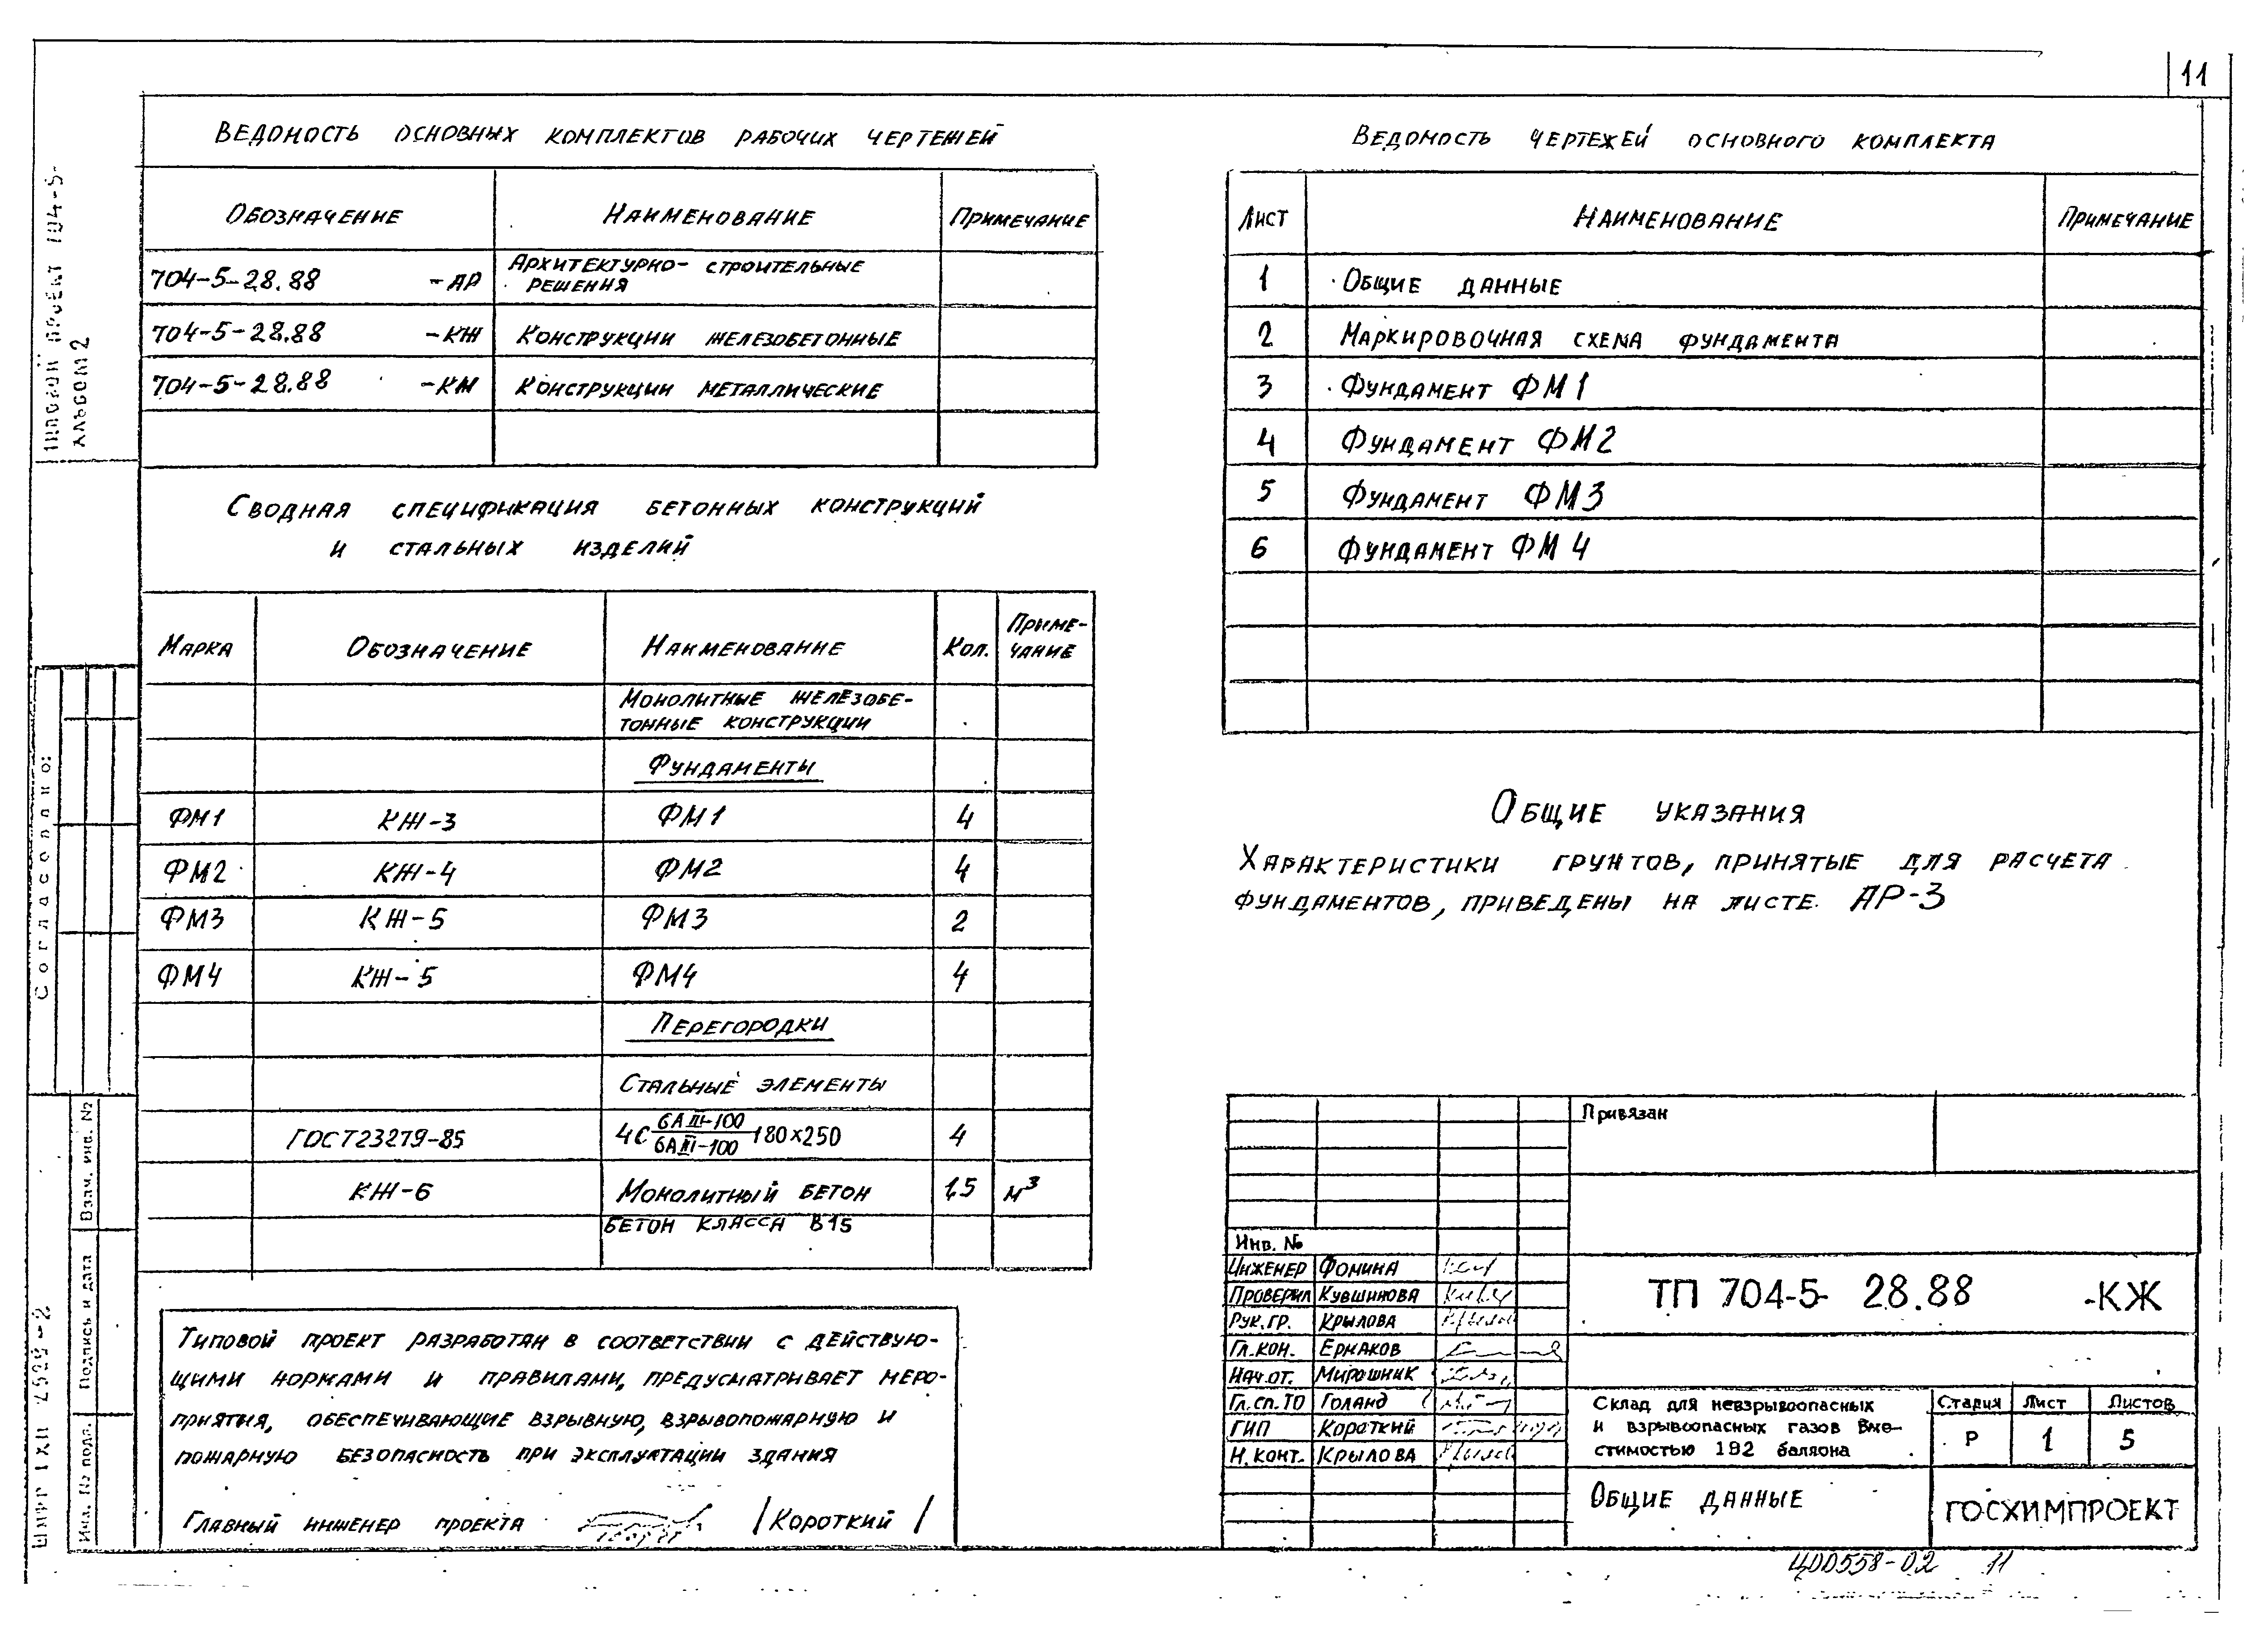 11
Ведомость основных комплектов рабочих чертежей
Обозначение Наименование Примечание
704-5-28.88 -АР Архитектурно-строительные
решения
704-5-28.88 -КЖ Конструкции железобетонные
704-5-28.88 -КМ Конструкции металлические
Сводная спецификация бетонных конструкций
и стальных изделий
Марка Обозначение Наименование Кол. Приме-
чание
Монолитные железобе-
тонные конструкции
Фундаменты
ФМ1 КЖ-3 ФМ1 4
ФМ2 КЖ-4 ФМ2 4
ФМ3 КЖ-5 ФМ3 2
ФМ4 КЖ-5 ФМ4 4
Перегородки
Стальные элементы
ГОСТ23279-85 4С 6АIII-100/6АIII-100 180×250 4
КЖ-6 Монолитный бетон 1,5 м³
бетон класса В15
Типовой проект разработан в соответствии с действую-
щими нормами и правилами, предусматривает меро-
приятия, обеспечивающие взрывную, взрывопожарную и
пожарную безопасность при эксплуатации здания
Главный инженер проекта /Короткий/
Ведомость чертежей основного комплекта
Лист Наименование Примечание
1 Общие данные
2 Маркировочная схема фундамента
3 Фундамент ФМ1
4 Фундамент ФМ2
5 Фундамент ФМ3
6 Фундамент ФМ4
Общие указания
Характеристики грунтов, принятые для расчета
фундаментов, приведены на листе АР-3
Привязан
Инв. №
Инженер Фомина
Проверил Кувшинова
Рук.гр. Крылова
Гл.кон. Ермаков
Нач.от. Мирошник
Гл.сп.ТО Голанд
ГИП Короткий
Н.конт. Крылова
ТП 704-5- 28.88 -КЖ
Склад для невзрывоопасных
и взрывоопасных газов вме-
стимостью 192 баллона
Стадия Лист Листов
Р 1 5
Общие данные
ГОСХИМПРОЕКТ
Ц00558-02 11
Типовой проект 704-5-
Альбом 2
Согласовано:
Взам. инв. №
Подпись и дата
Инв. № подл.